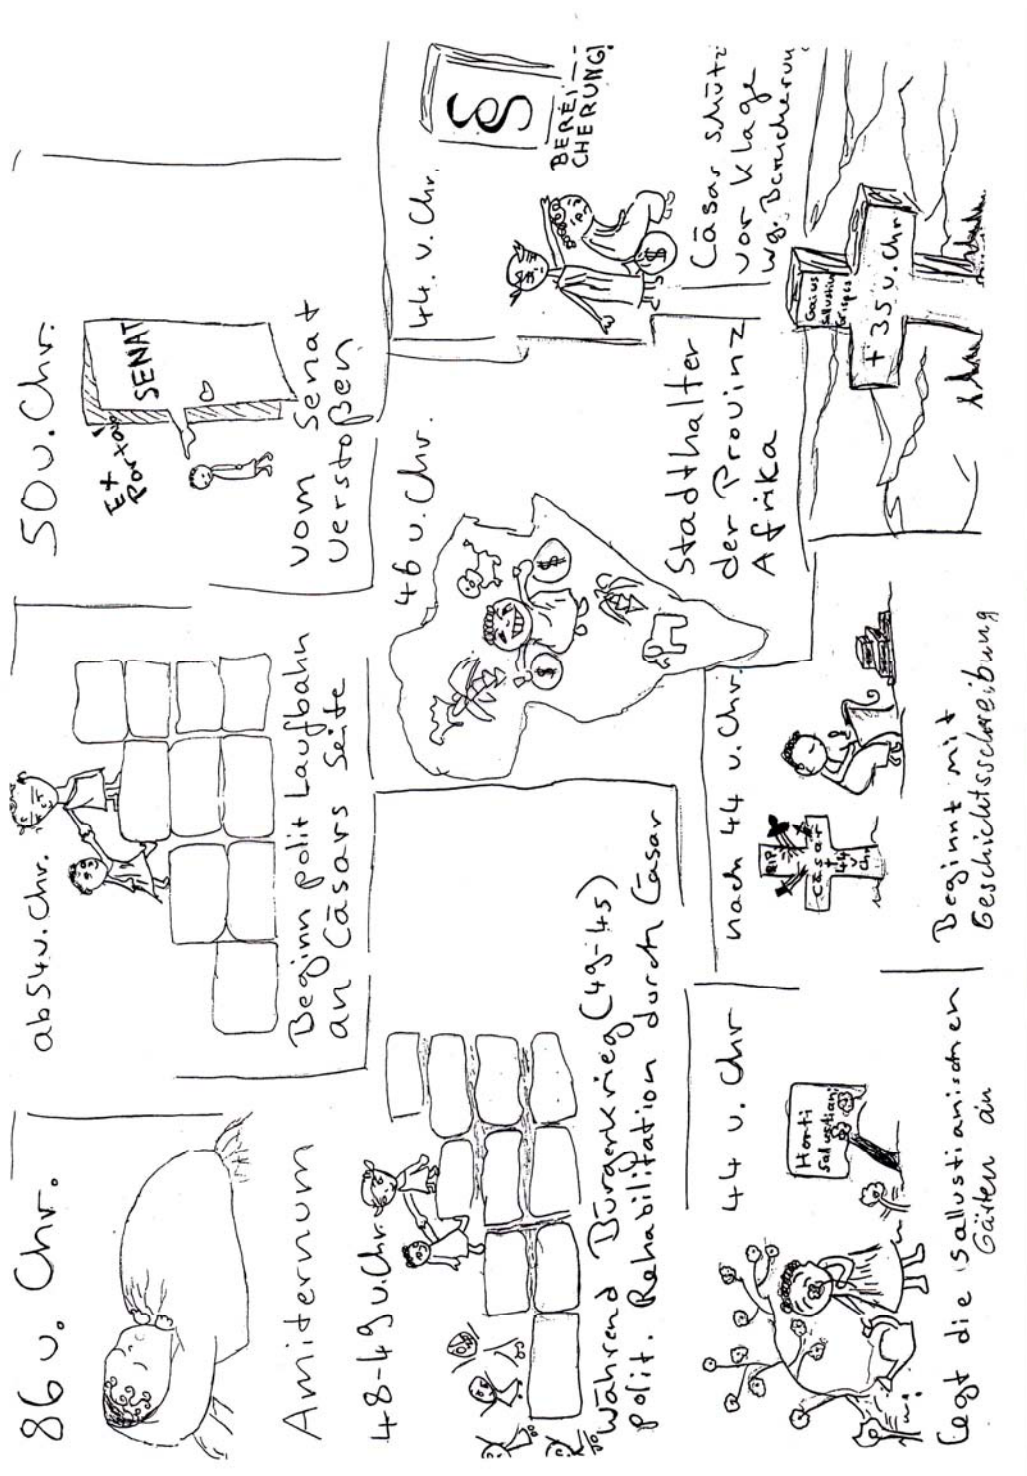 86 v. Chr.
Amiternum
ab 54 v. Chr.
Beginn polit Laufbahn
an Cäsars Seite
50 v. Chr.
SENAT
vom Senat
verstoßen
48-49 v. Chr.
Während Bürgerkrieg (49-45)
polit. Rehabilitation durch Cäsar
46 v. Chr.
$
$
Stadthalter
der Provinz
Afrika
44. v. Chr.
§
BEREI-
CHERUNG!
$
Cäsar schütz
vor Klage
wg. Bereicherung
44 v. Chr
Horti
Salustiani
Legt die sallustianischen
Gärten an
nach 44 v. Chr.
RIP
Cäsar
+
44
v
Chr
Beginnt mit
Geschichtsschreibung
Gaius
Sallustius
Crispus
+ 35 v. Chr